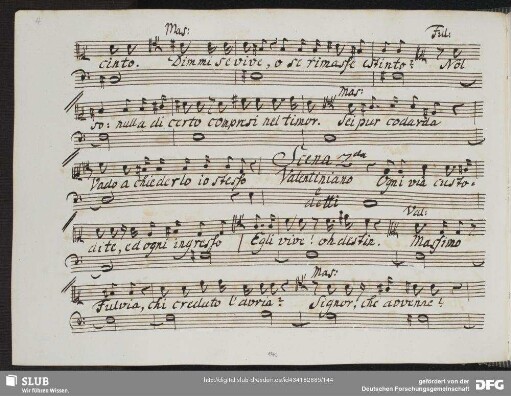 Mas: Ful:
cinto. Dimmi se vive, o se rimasse estinto? Nol
Mas:
so: nulla di certo compresi nel timor. Sei pur codarda
Scena 2da
Vado a chiederlo io stesso Valentiniano Ogni via custo-
e detti
Val:
dite, ed ogni ingresso Egli vive! oh destin. Massimo
Mas:
Fulvia, chi creduto l'avria? Signor, che avvenne?
SLUB
Wir führen Wissen.
gefördert von der
Deutschen Forschungsgemeinschaft
DFG